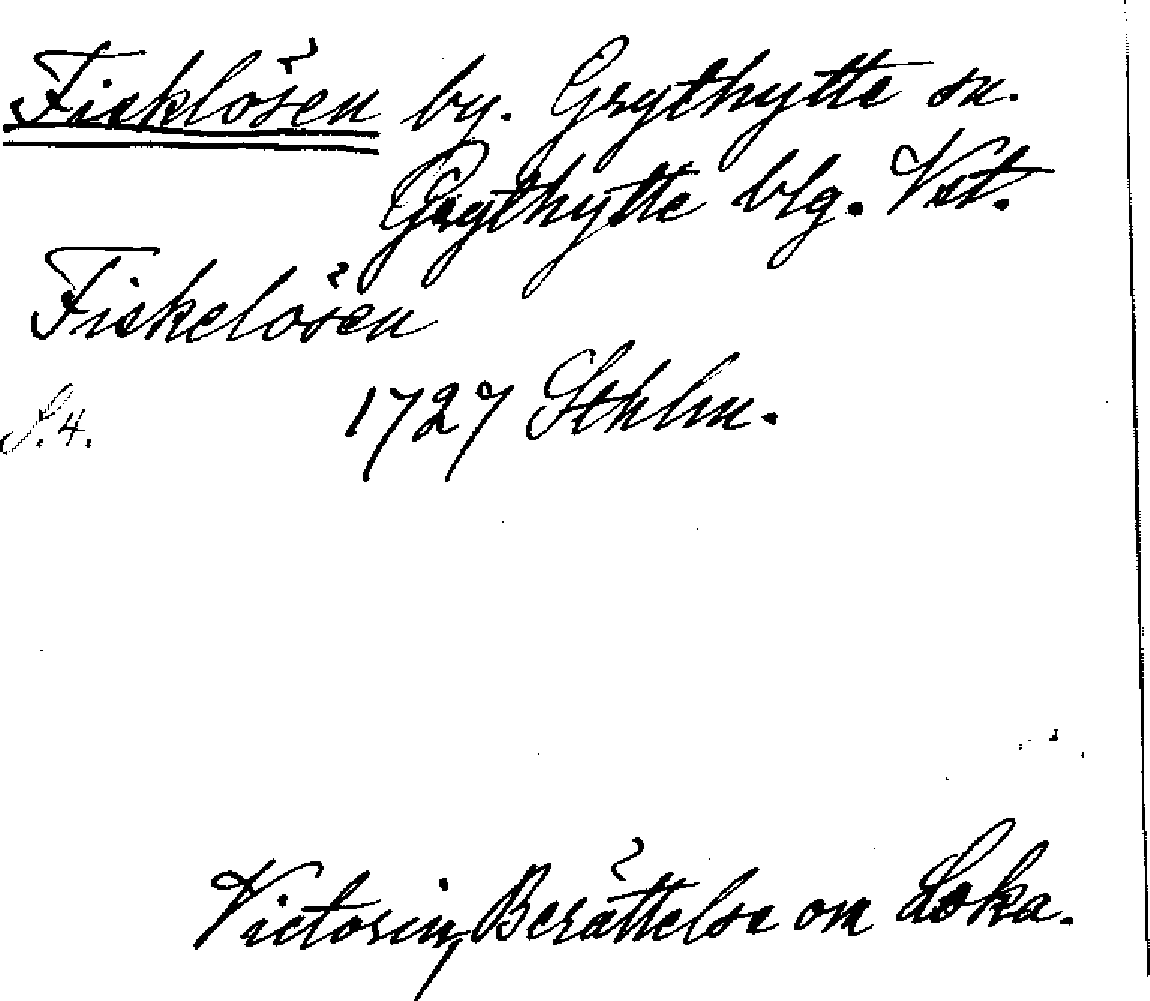 Fisklösen by. Grythytte sn.
Grythytte blg. Vst.
Fiskelösen
S. 4. 1727 Sthlm.
Victorin, Berättelse om Loka.